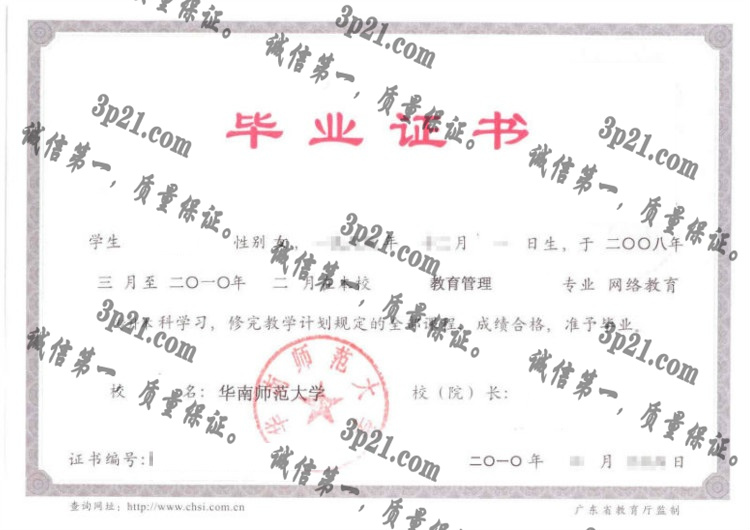 毕业证书
学生 性别 女, 年 十二月 一 日生, 于 二〇〇八年
三 月至 二〇一〇年 二 月在本校 教育管理 专业 网络教育
本科学习, 修完教学计划规定的全部课程, 成绩合格, 准予毕业。
校 名: 华南师范大学 校（院）长:
华南师范大
证书编号:
二〇一〇 年 月 日
查询网址: http://www.chsi.com.cn 广东省教育厅监制
质量保证。
3p21.com
诚信第一, 质量保证。
3p21.com
诚信第一, 质量保证。
3p21.com
诚信第一, 质量保证。
3p21.com
诚信第一, 质量保证。
3p21.com
诚信第一, 质量保证。
3p21.com
诚信第一, 质量保证。
3p21.com
诚信第一, 质量保证。